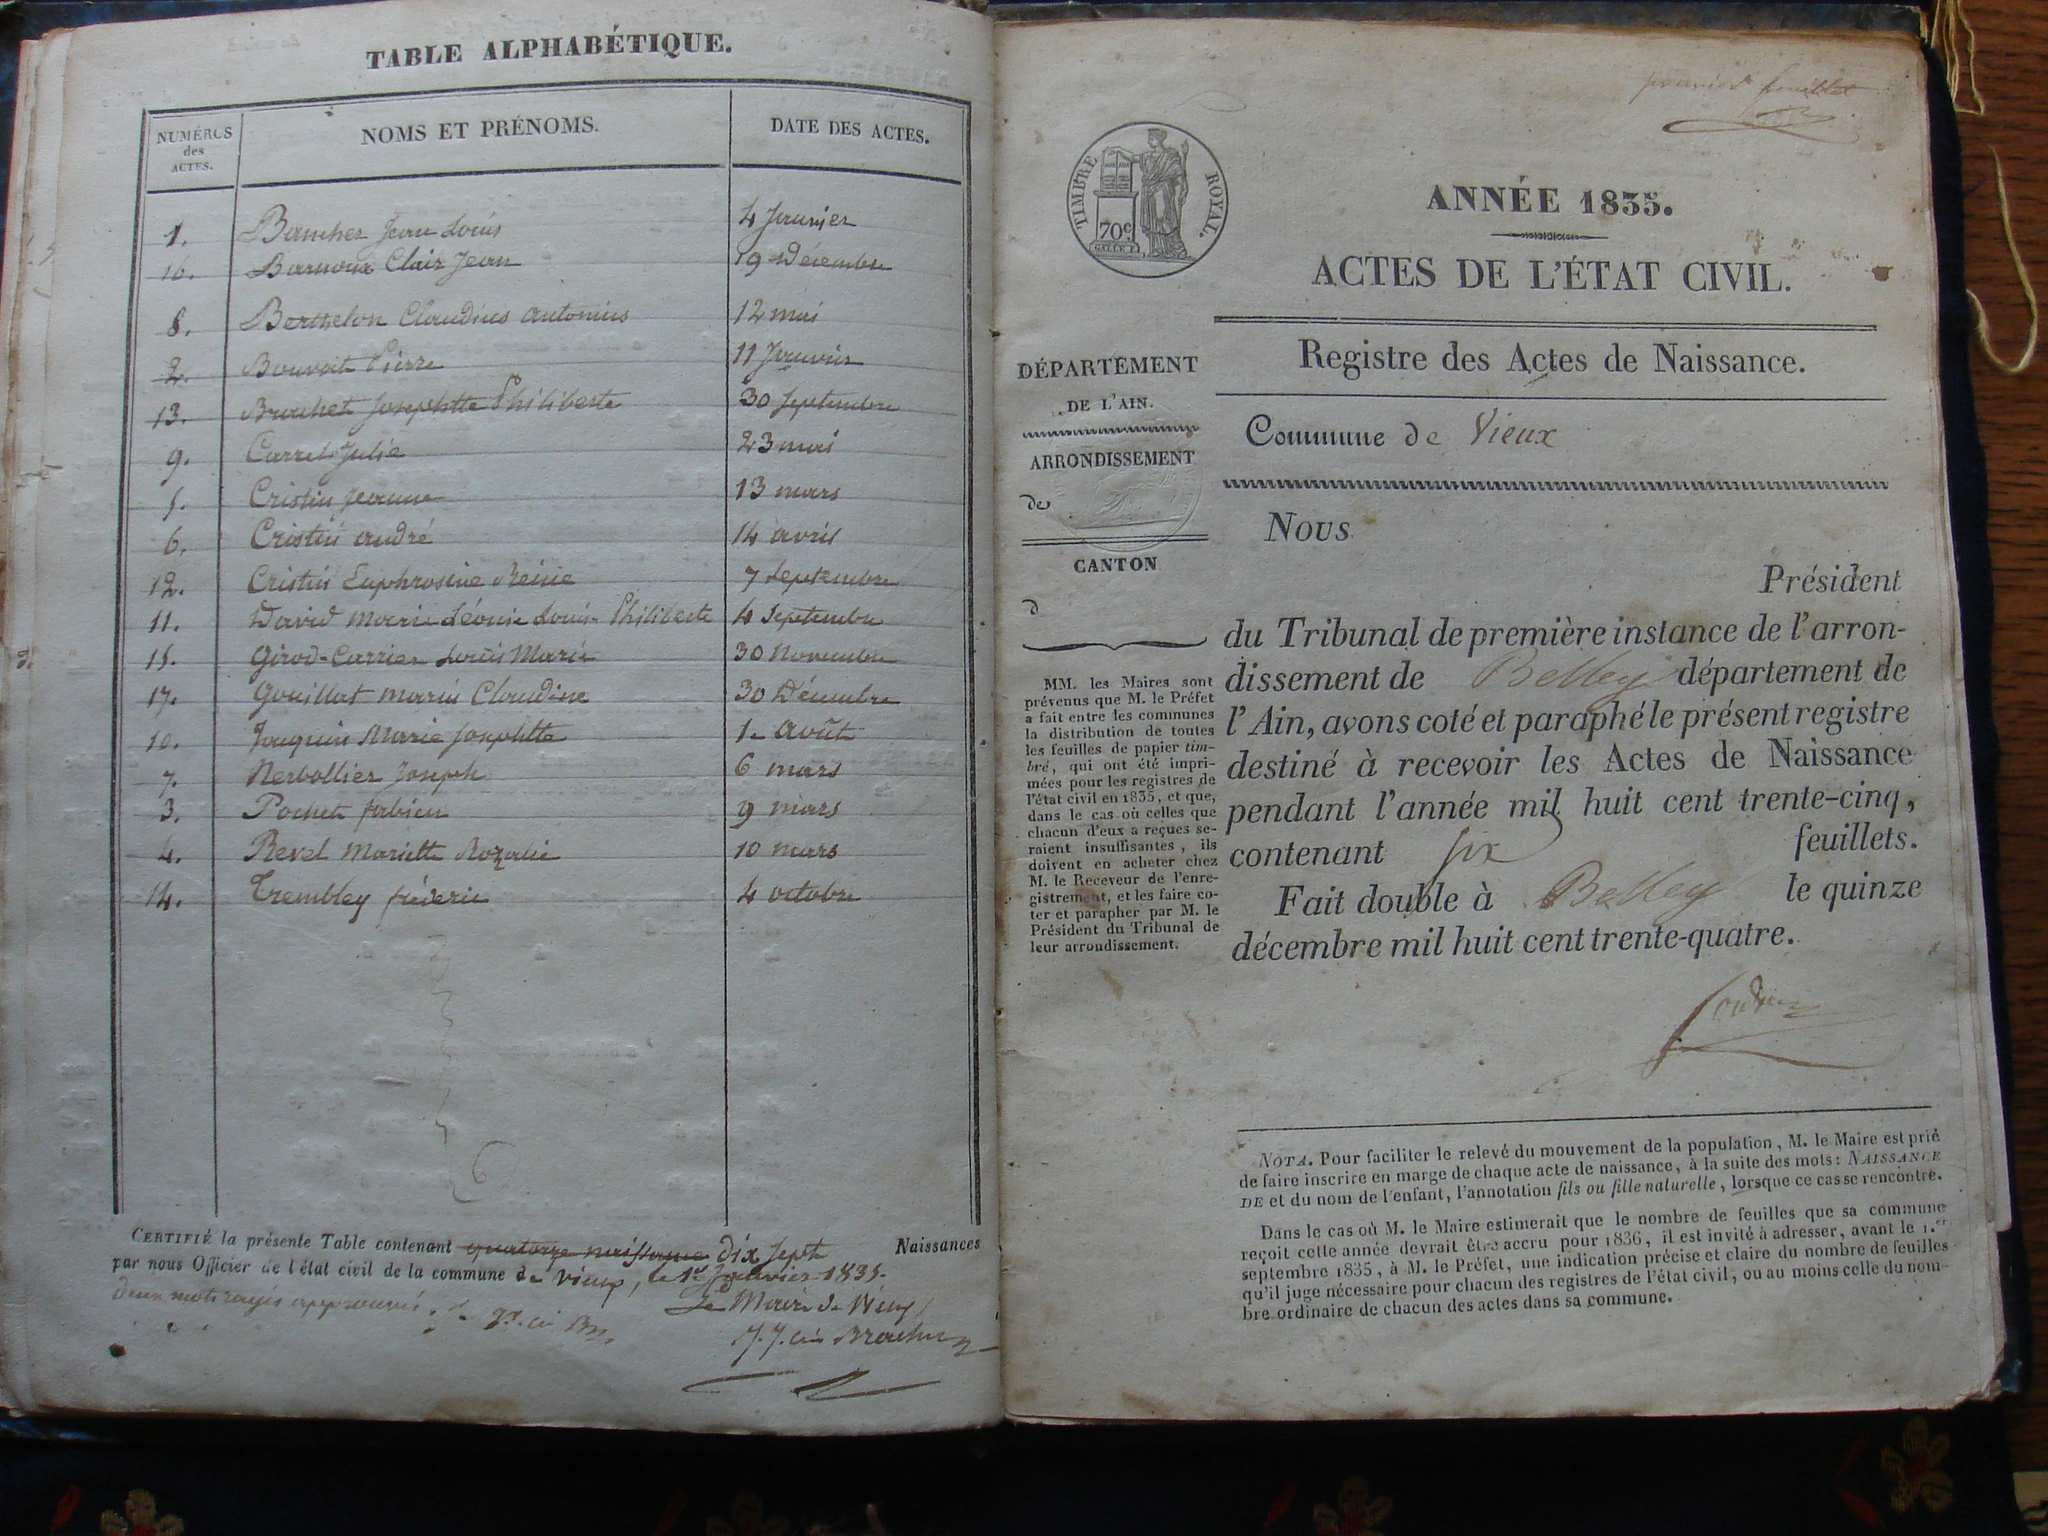 TABLE ALPHABÉTIQUE.
NUMÉROS des ACTES. NOMS ET PRÉNOMS. DATE DES ACTES.
1. Jean Louis 4 Janvier
16. Clair Jean 19 Décembre
8. Berthelon Claudius antonius 12 mai
2. Pierre 11 Janvier
13. Josephtte Philiberte 30 Septembre
9. Carrel Julie 23 mai
5. Cristin Jeanne 13 mars
6. Cristin andré 14 avril
12. Cristin Euphrosine Reine 7 Septembre
11. David Marie Léonie Louise Philiberte 4 Septembre
15. Girod-Carrier Louis Marie 30 Novembre
17. Gouillat Claudine 30 Décembre
10. Jouquin Marie Josephtte 1er Août
7. Nerbollier Joseph 6 mars
3. Pochet fabien 9 mars
4. Revel Mariette Rozalie 10 mars
14. Trembley fréderic 4 octobre
CERTIFIÉ la présente Table contenant quatorze naissance dix sept Naissances
par nous Officier de l'état civil de la commune de vieux, le 1er Janvier 1835.
deux mots rayés approuvés
Le Maire de Vieux
premier feuillet
TIMBRE ROYAL.
70c
ANNÉE 1835.
ACTES DE L'ÉTAT CIVIL.
Registre des Actes de Naissance.
Commune de Vieux
DÉPARTEMENT
DE L'AIN.
ARRONDISSEMENT
de
CANTON
d
MM. les Maires sont
prévenus que M. le Préfet
a fait entre les communes
la distribution de toutes
les feuilles de papier tim-
bré, qui ont été impri-
mées pour les registres de
l'état civil en 1835, et que,
dans le cas où celles que
chacun d'eux a reçues se-
raient insuffisantes, ils
doivent en acheter chez
M. le Receveur de l'enre-
gistrement, et les faire co-
ter et parapher par M. le
Président du Tribunal de
leur arrondissement.
Nous
Président
du Tribunal de première instance de l'arron-
dissement de Belley département de
l'Ain, avons coté et paraphé le présent registre
destiné à recevoir les Actes de Naissance
pendant l'année mil huit cent trente-cinq,
contenant six feuillets.
Fait double à Belley le quinze
décembre mil huit cent trente-quatre.
NOTA. Pour faciliter le relevé du mouvement de la population, M. le Maire est prié
de faire inscrire en marge de chaque acte de naissance, à la suite des mots: NAISSANCE
DE et du nom de l'enfant, l'annotation fils ou fille naturelle, lorsque ce cas se rencontre.
Dans le cas où M. le Maire estimerait que le nombre de feuilles que sa commune
reçoit cette année devrait être accru pour 1836, il est invité à adresser, avant le 1.er
septembre 1835, à M. le Préfet, une indication précise et claire du nombre de feuilles
qu'il juge nécessaire pour chacun des registres de l'état civil, ou au moins celle du nom-
bre ordinaire de chacun des actes dans sa commune.